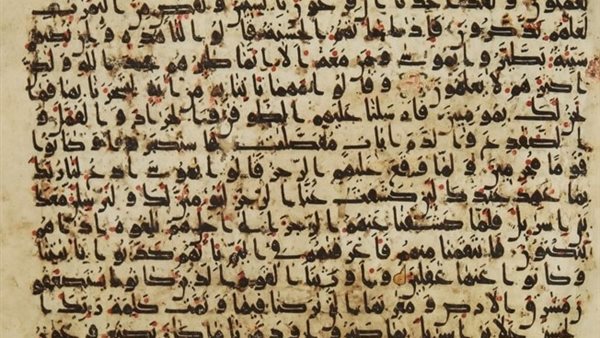 تعملون ولقد اخذنا ال فرعون بالسنين ونقص من الثمرت
لعلهم يذكرون فاذا جاتهم الحسنه قالوا لنا هذه وان تصبهم
سيئه يطيروا بموسى ومن معه الا انما طئرهم عند الله ولكن
اكثرهم لا يعلمون وقالوا مهما تاتنا به من ايه لتسحرنا بها فما
نحن لك بمومنين فارسلنا عليهم الطوفن والجراد والقمل و
الضفدع والدم ايات مفصلت فاستكبروا وكانوا
قوما مجرمين ولما وقع عليهم الرجز قالوا يموسى ادع لنا ربك
بما عهد عندك لئن كشفت عنا الرجز لنومنن لك ولنرسلن معك
بني اسريل فلما كشفنا عنهم الرجز الى اجل هم بلغوه اذا هم
ينكثون فانتقمنا منهم فاغرقنهم في اليم بانهم كذبوا بايتنا
وكانوا عنها غفلين واورثنا القوم الذين كانوا يستضعفون
مشرق الارض ومغربها التي بركنا فيها وتمت كلمت ربك ا
لحسنى على بني اسريل بما صبروا ودمرنا ما كان يصنع فرعون